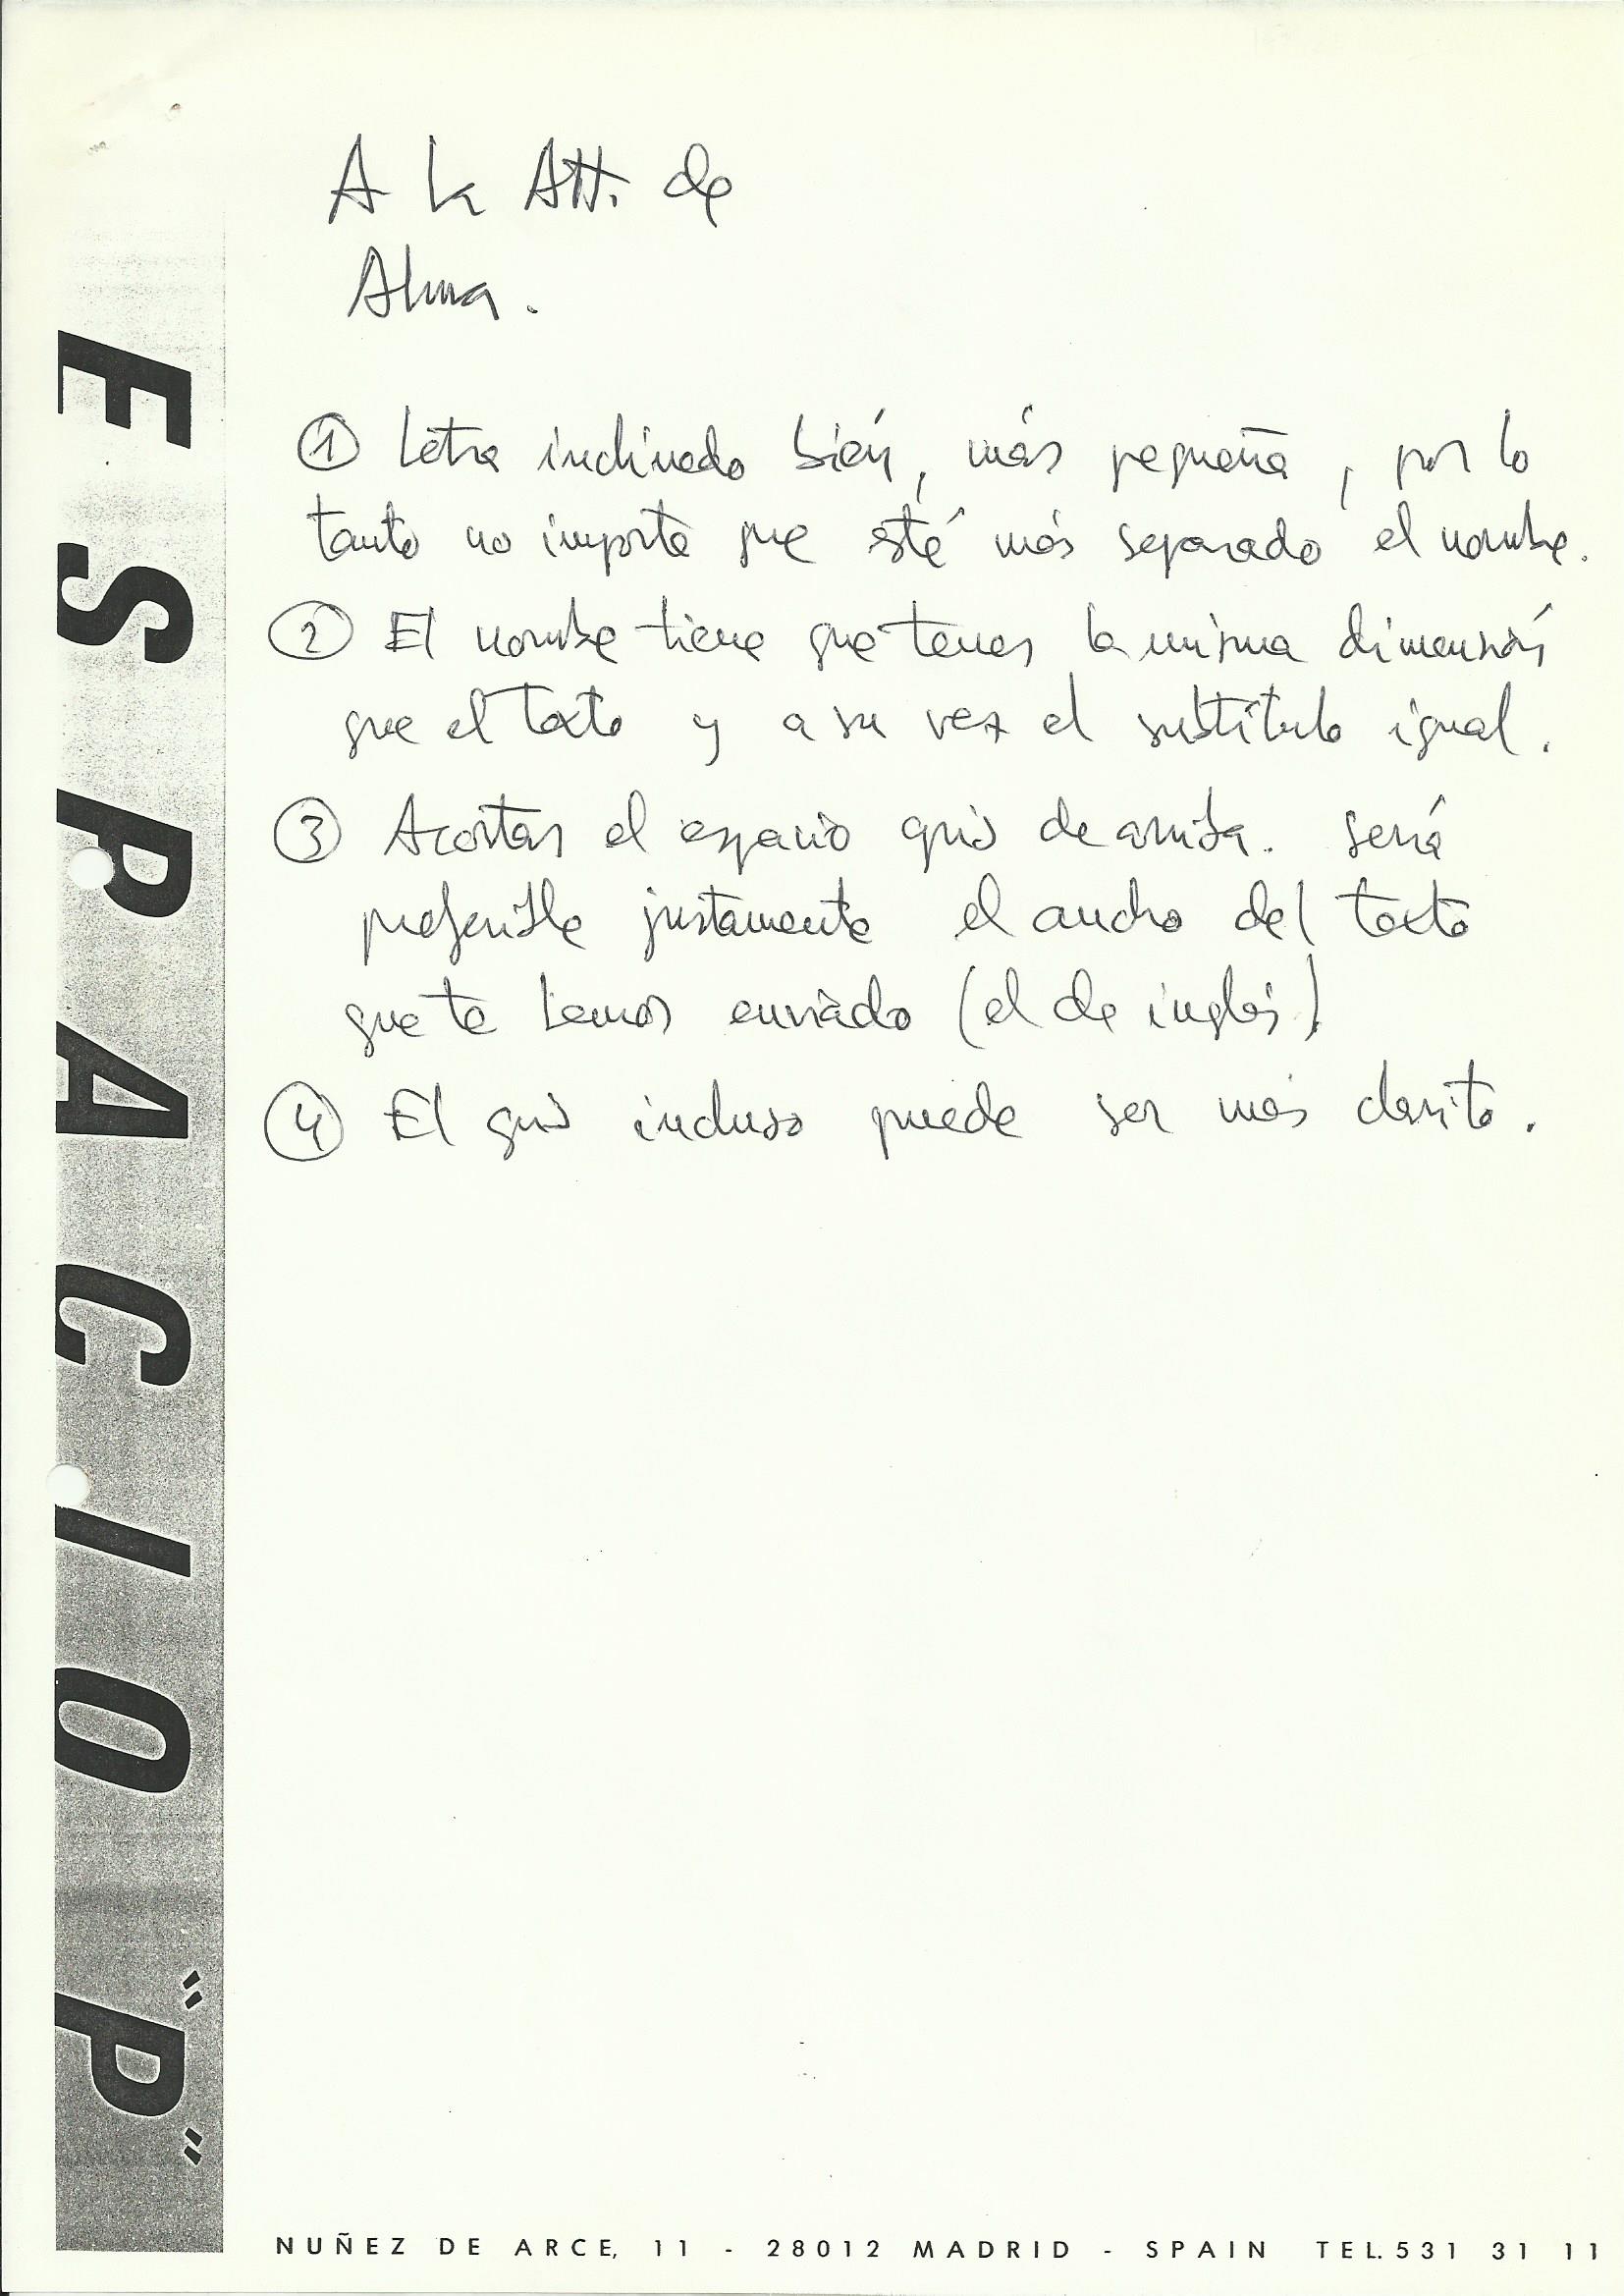 A la Att. de
Alma.
① Letra inclinado bién, más pequeña, por lo
tanto no importa que esté más separado el nombre.
② El nombre tiene que tener la misma dimensión
que el texto y a su vez el subtítulo igual.
③ Acortar el espacio gris de arriba. Será
preferible justamente el ancho del texto
que te hemos enviado (el de inglés)
④ El gris incluso puede ser más clarito.
ESPACIO "P"
NUÑEZ DE ARCE, 11 - 28012 MADRID - SPAIN TEL. 531 31 11